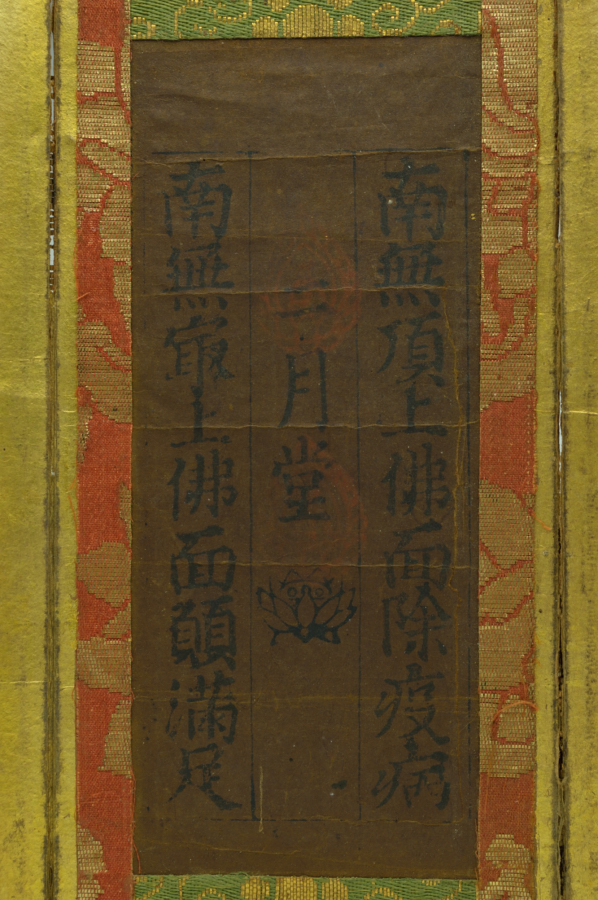 南無頂上佛面除疫病
二月堂
南無㝡上佛面願滿足